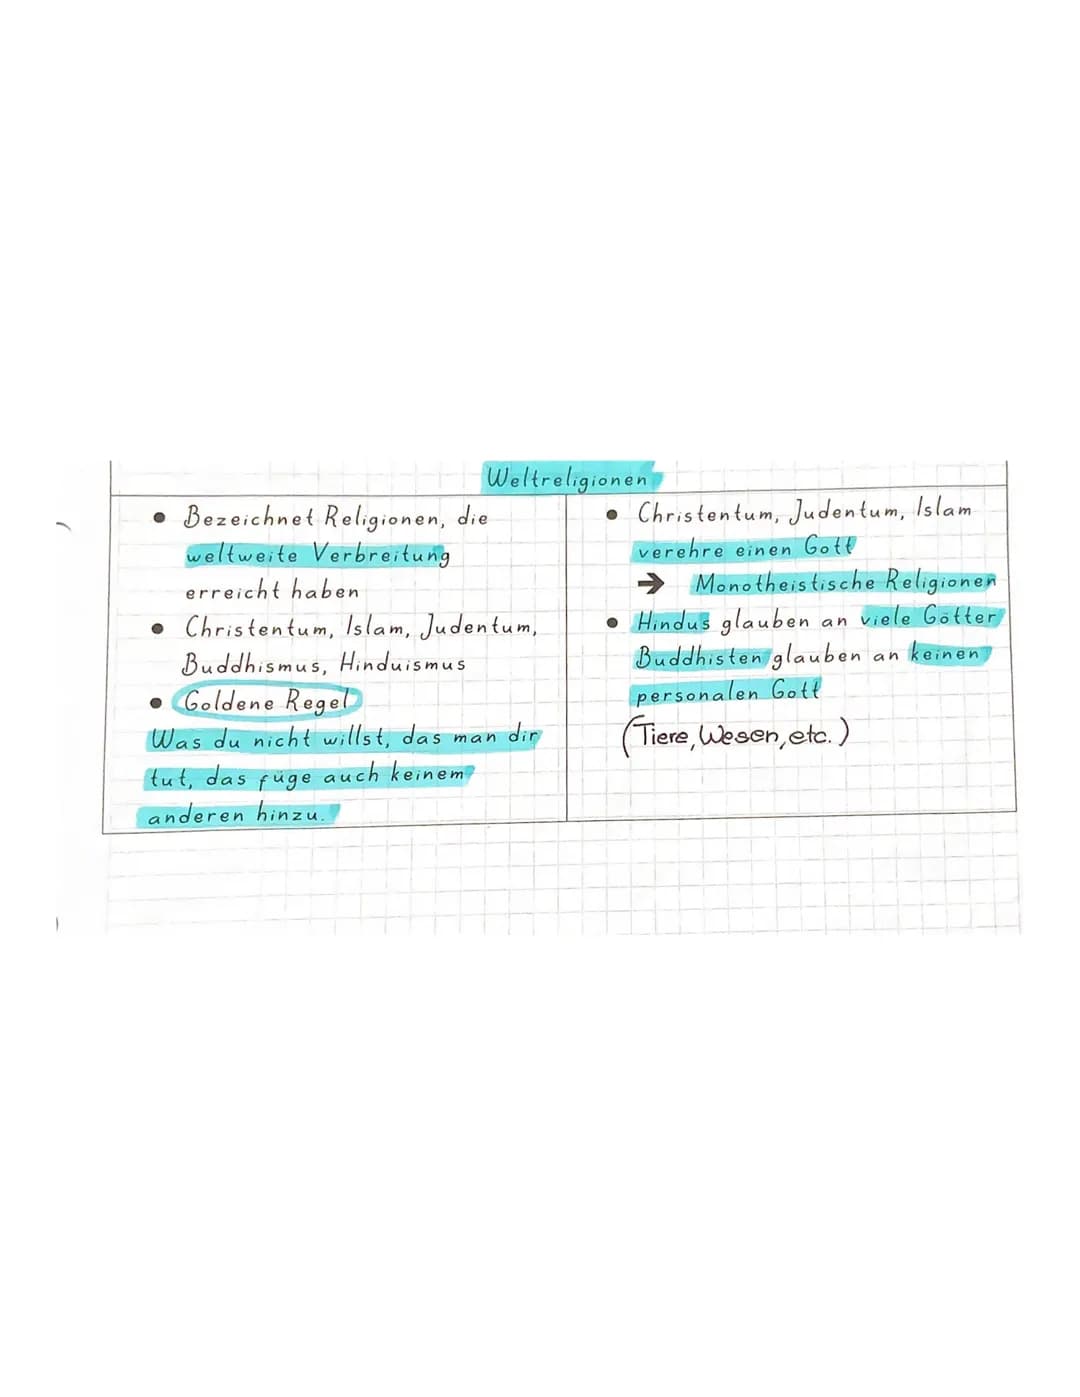 Weltreligionen
• Bezeichnet Religionen, die
weltweite Verbreitung
erreicht haben
• Christentum, Islam, Judentum,
Buddhismus, Hinduismus
• Goldene Regel
Was du nicht willst, das man dir
tut, das füge auch keinem
anderen hinzu.
• Christentum, Judentum, Islam
verehre einen Gott
→ Monotheistische Religionen
• Hindus glauben an viele Götter
Buddhisten glauben an keinen
personalen Gott
(Tiere, Wesen, etc.)